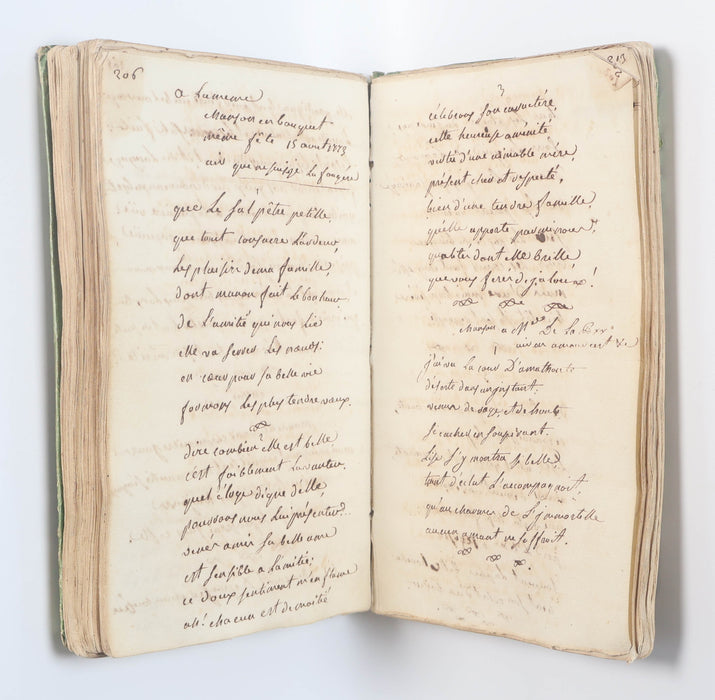 206
a la meme
chanson en bouquet
même fête 15 aout 1773
air que ne suis je la fougère
que le salpêtre petille,
que tout consacre l'ardeur,
les plaisirs d'une famille,
dont manon fait le bonheur.
de l'amitié qui nous lie
elle va serrer les nœuds:
en cœur pour sa belle vie
formons les plus tendre vœux.
dire combien elle est belle
c'est foiblement la vanter,
quel éloge digne d'elle,
pouvons nous lui présenter?..
venés amis sa belle ame
est sensible a l'amitié;
ce doux sentiment m'en flame
ah! chacun est de moitié
213
2
3
célébrons son caractére,
cette heureuse aménité
vertu d'une aimable mére,
présent cher et respecté,
bien d'une tendre famille,
qu'elle apporte
qualités dont elle brille
que vous ferés déja loüer!
chanson a Mde De la Cxx
air
j'ai vu la cour d'amathonte
déserte dans un instant:
venus de rage, et de honte
se cacher en soupirant.
lise s'y montra si belle,
tant d'eclat l'accompagnoit,
qu'au charmes de l'immortelle
aucun amant ne s'offroit.